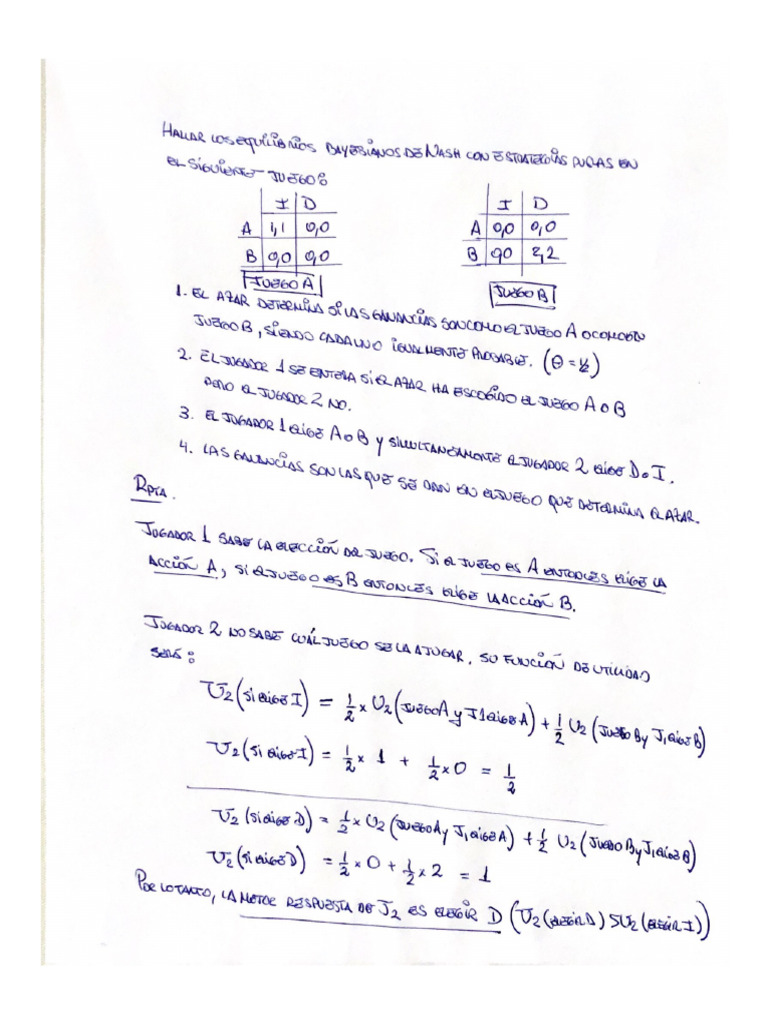 HALLAR LOS EQUILIBRIOS BAYESIANOS DE NASH CON ESTRATEGIAS PURAS EN
EL SIGUIENTE JUEGO:
I D
A 1,1 0,0
B 0,0 0,0
JUEGO A
I D
A 0,0 0,0
B 0,0 2,2
JUEGO B
1. EL AZAR DETERMINA SI LAS GANANCIAS SON COMO EL JUEGO A O COMO EN
JUEGO B, SIENDO CADA UNO IGUALMENTE PROBABLE. (θ = 1/2)
2. EL JUGADOR 1 SE ENTERA SI EL AZAR HA ESCOGIDO EL JUEGO A O B
PERO EL JUGADOR 2 NO.
3. EL JUGADOR 1 ELIGE A O B Y SIMULTANEAMENTE EL JUGADOR 2 ELIGE D O I.
4. LAS GANANCIAS SON LAS QUE SE DAN EN EL JUEGO QUE DETERMINA EL AZAR.
RPTA.
JUGADOR 1 SABE LA ELECCIÓN DEL JUEGO. SI EL JUEGO ES A ENTONCES ELIGE LA
ACCIÓN A, SI EL JUEGO ES B ENTONCES ELIGE LA ACCIÓN B.
JUGADOR 2 NO SABE CUÁL JUEGO SE VA A JUGAR, SU FUNCIÓN DE UTILIDAD
SERÁ:
U2 (SI ELIGE I) = 1/2 x U2 (JUEGO A y J1 ELIGE A) + 1/2 U2 (JUEGO B y J1 ELIGE B)
U2 (SI ELIGE I) = 1/2 x 1 + 1/2 x 0 = 1/2
U2 (SI ELIGE D) = 1/2 x U2 (JUEGO A y J1 ELIGE A) + 1/2 U2 (JUEGO B y J1 ELIGE B)
U2 (SI ELIGE D) = 1/2 x 0 + 1/2 x 2 = 1
POR LO TANTO, LA MEJOR RESPUESTA DE J2 ES ELEGIR D (U2 (ELEGIR D) > U2 (ELEGIR I))